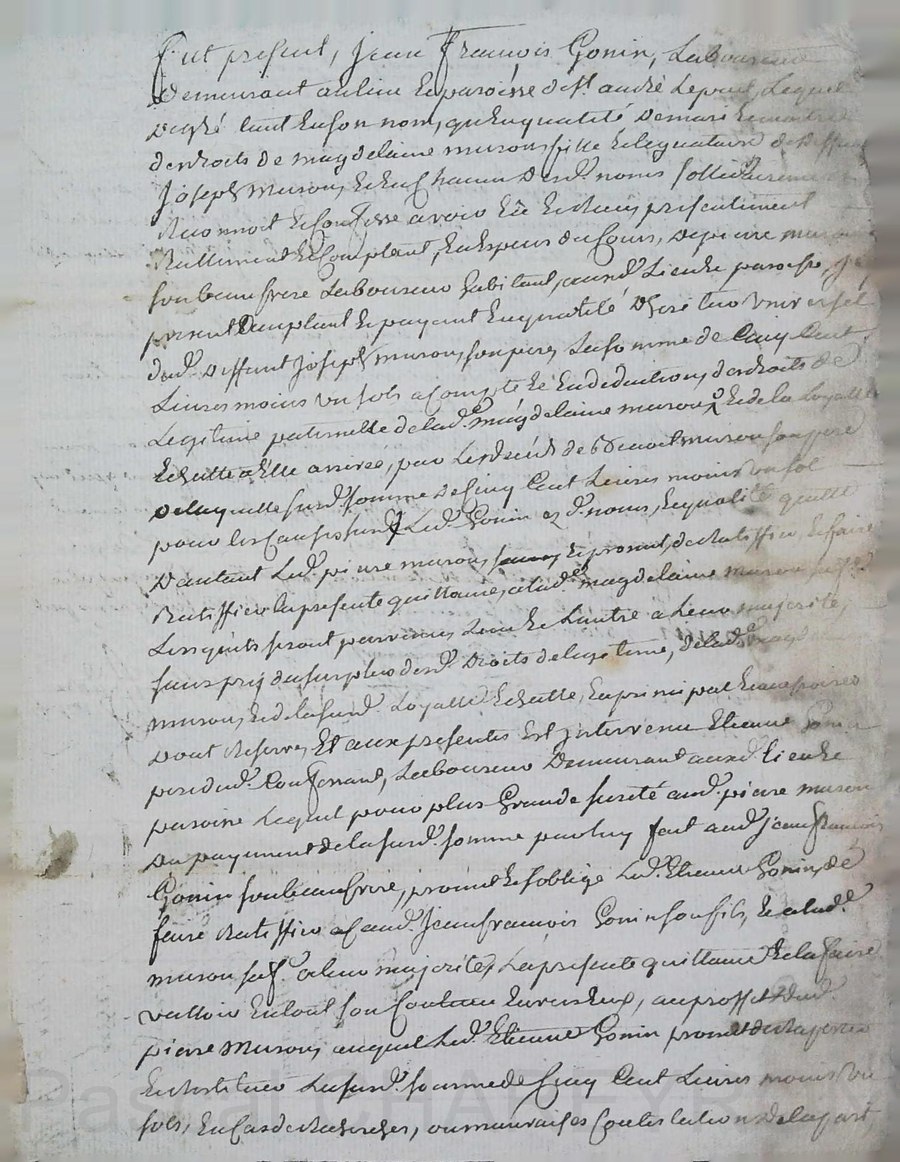 Fut present, Jean François Gonin, Laboureur
Demeurant au lieu et paroisse de St. andré Le puy, Lequel
De gré tant en son nom, qu'en qualité De mari et maitre
des droits de magdelaine muron fille et legataire de deffunt
Joseph Muron, et en chacun Desd. noms sollidairement
Reconnoit et confesse avoir Eu et Reçu présentement
Reellement et Comptant, en Especes du Cours, de pierre muron
son beau frere Laboureur habitant, auxd. Lieu et paroisse,
present acceptant et payant En qualité D'heritier Universel
dud. Deffunt Joseph muron, son pere, La somme de Cinq Cent
Livres moins un sols a Compte et En deduction, des droits de
Legitime paternelle de lad. magdelaine muron, et de la Loyalle
Echutte a Elle arrivée, par Le deceds de muron son frere
De laquelle susd. somme de Cinq Cent Livres moins un sol
pour les Causes susd. Led. Gonin ez d. noms, En qualité quitte
D'autant Led. pierre muron, et promet, de Ratiffier, et faire
Ratiffier la presente quittance, a lad. magdelaine muron
Lorsqu'ils seront parvenus L'un et L'autre a Leur majorité,
sans prej. du surplus desd. Droits de legitime, de lad. magd.
muron, et de la susd. Loyalle Echutte, En principal et accessoires
Dont Reserve, Et aux presentes Est Intervenu Etienne Gonin
pere dud. Confessant, Laboureur Demeurant auxd. lieu et
paroisse Lequel pour plus Grande sureté aud. pierre muron
Du payement de la susd. somme par luy fait aud. Jean françois
Gonin son beau frere, promet et s'oblige Led. Etienne Gonin, de
faire Ratiffier aud. Jean françois Gonin son fils, et a lad.
muron sa f. a leur majorité, La presente quittance et la faire
valloir En tout son Contenu Envers Eux, au proffit dud.
pierre Muron, auquel Led. Etienne Gonin promet de Rapporter
et Restituer La susd. somme de Cinq Cent Livres moins un
sols, En Cas de Recherches, ou mauvaises Contestations de la part
Pascal CHA